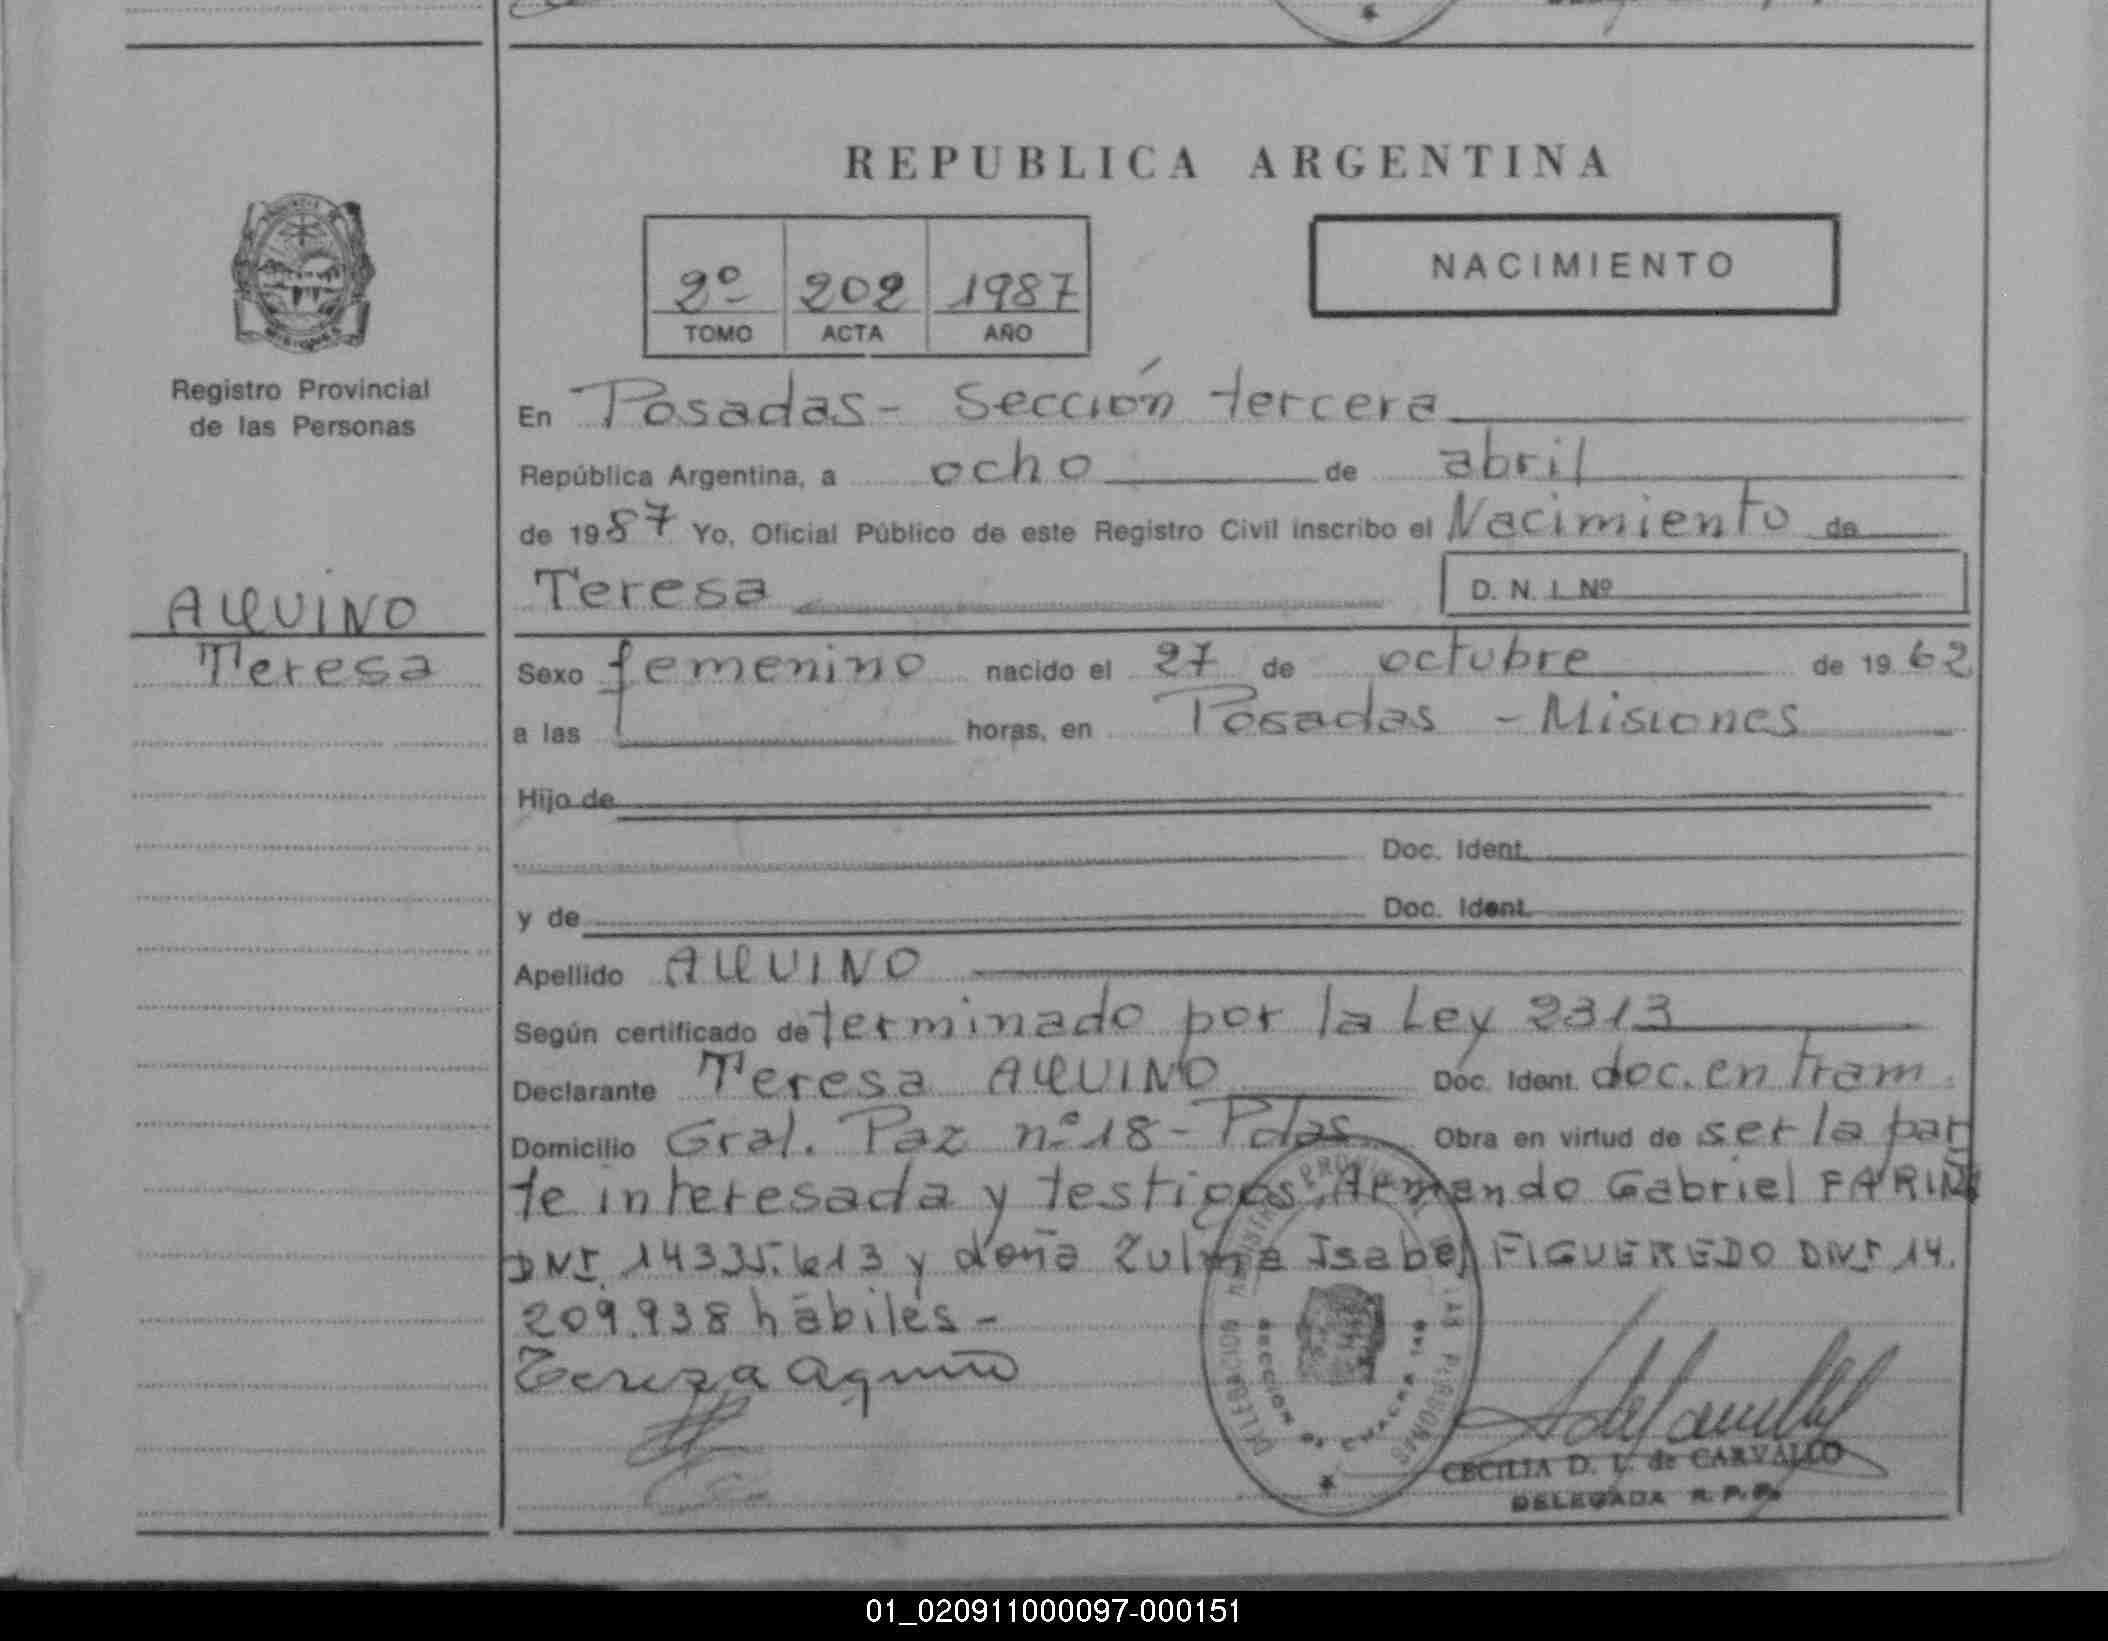 REPUBLICA ARGENTINA
2º 202 1987
TOMO ACTA AÑO
NACIMIENTO
Registro Provincial
de las Personas
AQUINO
Teresa
En Posadas - Sección tercera
República Argentina, a ocho de abril
de 1987 Yo, Oficial Público de este Registro Civil inscribo el Nacimiento de
Teresa D. N. I. Nº
Sexo femenino nacido el 27 de octubre de 1962
a las horas, en Posadas - Misiones
Hijo de
Doc. Ident.
y de Doc. Ident.
Apellido AQUINO
Según certificado determinado por la Ley 2313
Declarante Teresa AQUINO Doc. Ident. doc. en tram.
Domicilio Gral. Paz nº 18 - Pdas Obra en virtud de ser la par
te interesada y testigos Armando Gabriel
DNI. 14335.613 y doña Zulma Isabel FIGUEREDO DNI 14.
209.938 hábiles -
Tereza aquino
DELEGACION REGISTRO PROVINCIAL DE LAS PERSONAS
SECCION 3ª CHACRA
CECILIA D. L. de CARVALLO
DELEGADA R. P. P.
01_020911000097-000151